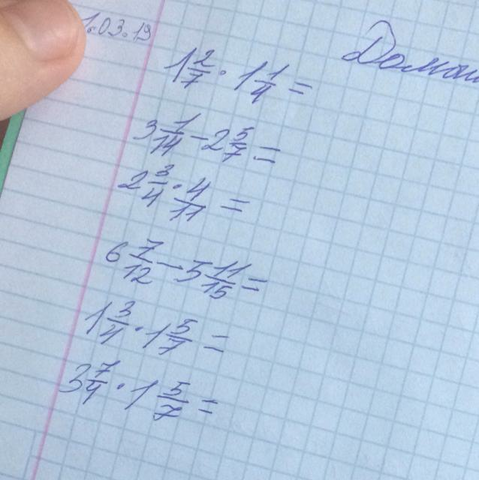 1.03.19
Домаш
1 2/7 · 1 1/4 =
3 1/14 - 2 5/7 =
2 3/4 · 4/11 =
6 7/12 - 5 11/15 =
1 3/4 · 1 5/7 =
3 7/4 · 1 5/7 =